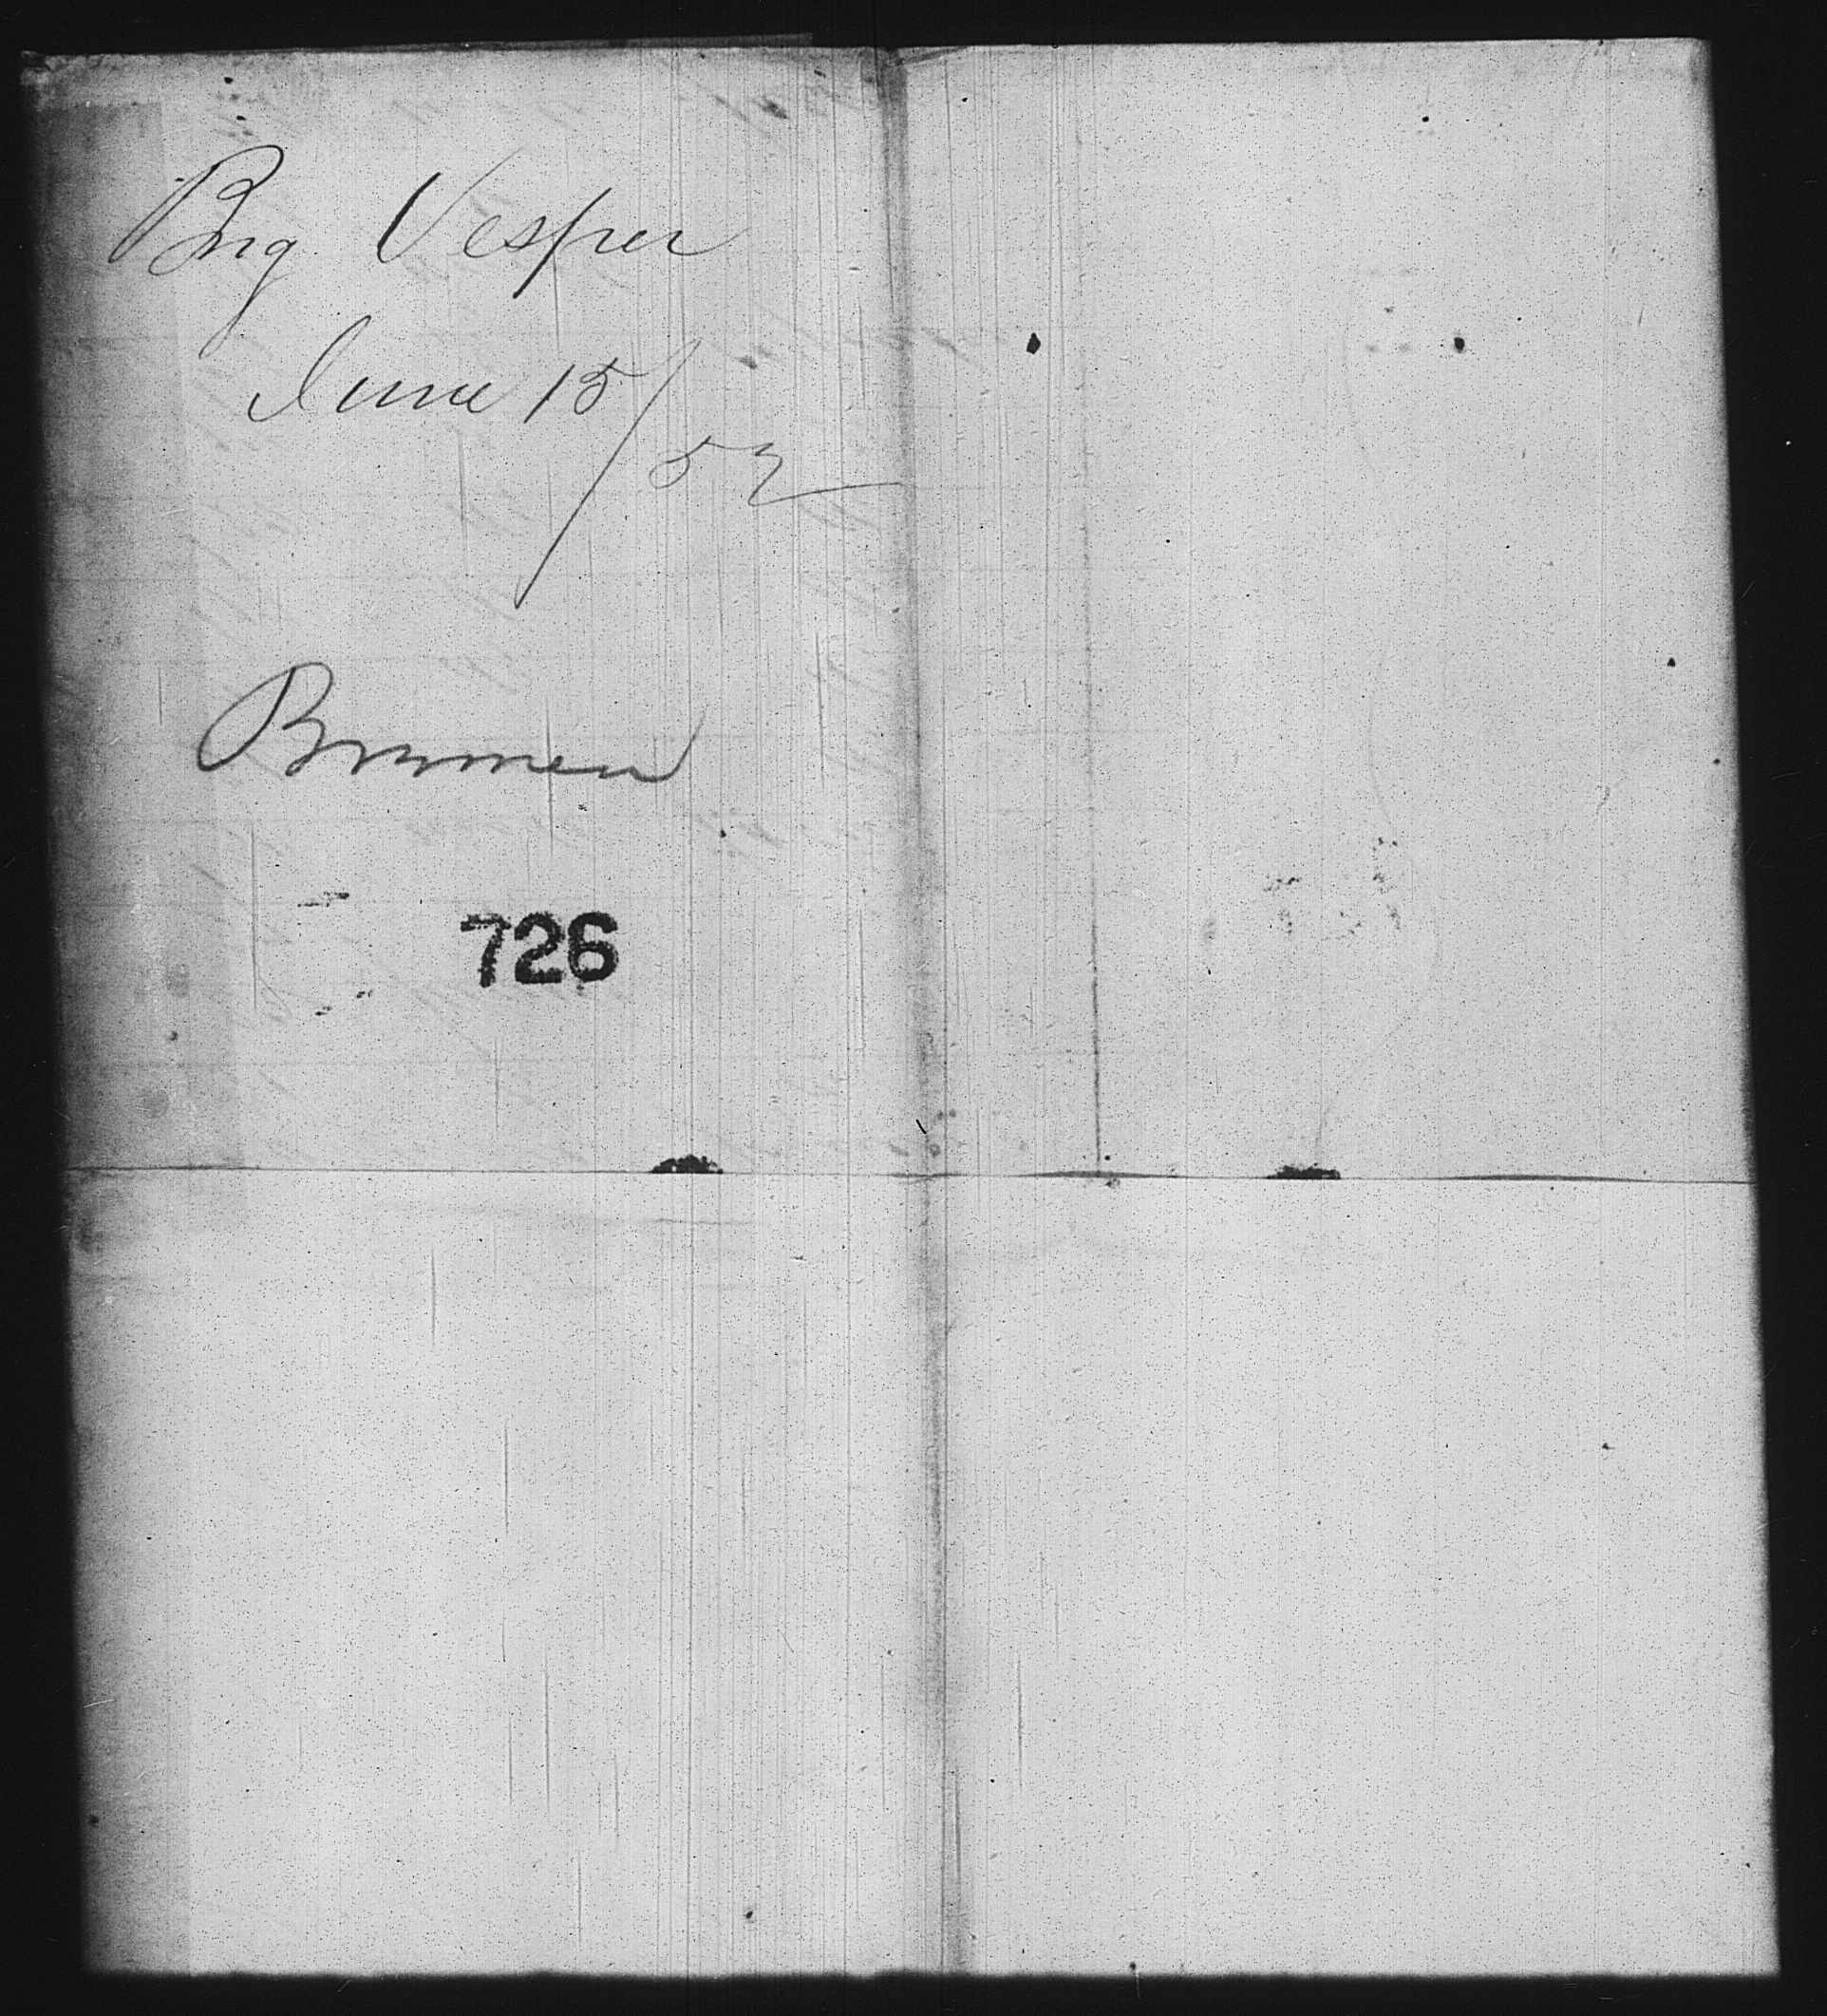 Brig Vesper
June 15/52
Bremen
726